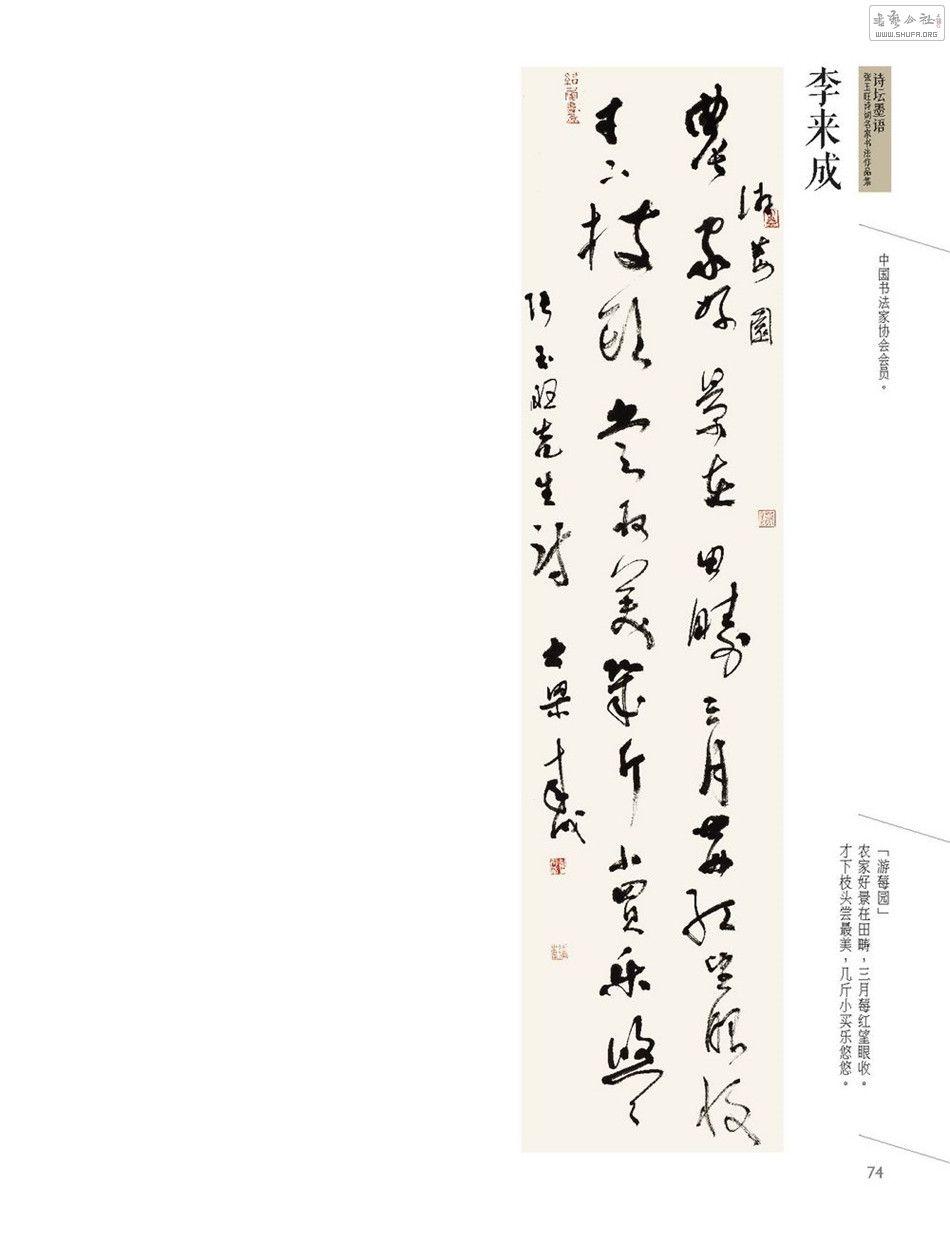 書藝公社
WWW.SHUFA.ORG
诗坛墨语
张玉旺诗词名家书法作品集
李来成
中国书法家协会会员。
游莓園
農家好景在田疇三月莓紅望眼收
才下枝頭嘗最美幾斤小買樂悠々
張玉旺先生詩 大梁来成
「游莓园」
农家好景在田畴，三月莓红望眼收。
才下枝头尝最美，几斤小买乐悠悠。
74